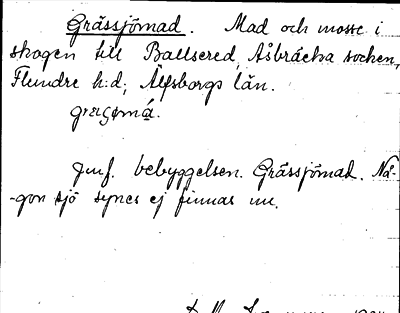 Grässjömad. Mad och mosse i
skogen till Ballsered, Åsbräcka socken,
Flundre h:d; Älfsborgs län.
Jmf. bebyggelsen. Grässjömad. Nå-
-gon sjö synes ej finnas nu.